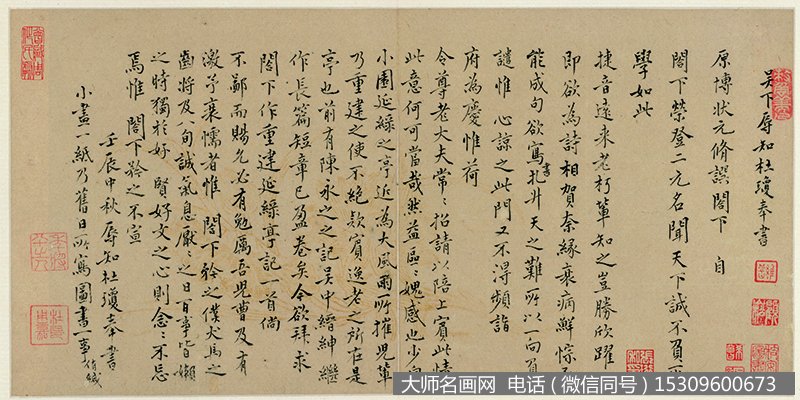 吴下辱知杜瓊奉書
原博状元脩譔閤下 自
閤下榮登二元名聞天下誠不負所
學如此
捷音遠來老朽輩知之豈勝欣躍
即欲為詩相賀奈緣衰病鮮悰不
能成句欲寫書扎升天之難所以一向負
譴惟 心諒之此門又不得頻詣
府為慶惟荷
令尊老大夫常〻招請以陪上賓此情
此意何可當哉然益區〻媿感也少白
小園延綠之亭近為大風雨所摧兒輩
乃重建之使不絕欵賓逸老之所在是
亭也前有陳永之之記吴中縉紳繼
作長篇短章已盈卷矣今欲拜求
閤下作重建延綠亭記一首倘
不鄙而賜允必有勉厲吾兒曹及有
激予衰懦者惟 閤下矜之僕犬馬之
齒將及八旬誠氣息厭〻之日百事皆嬾
之時獨於好賢好文之心則念〻不忘
焉惟 閤下矜之不宣
壬辰中秋辱知杜瓊奉書
小畫一紙乃舊日所寫圖書一事
大师名画网 电话（微信同号）15309600673